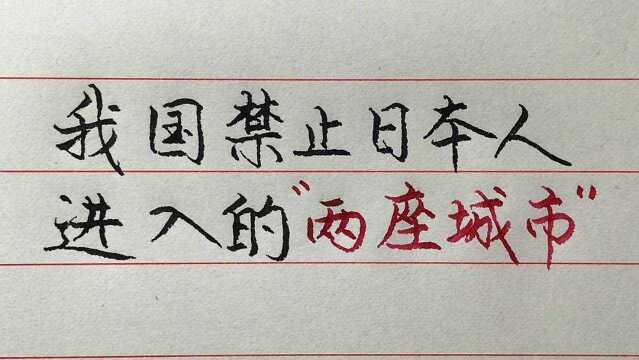 我国禁止日本人
进入的"两座城市"